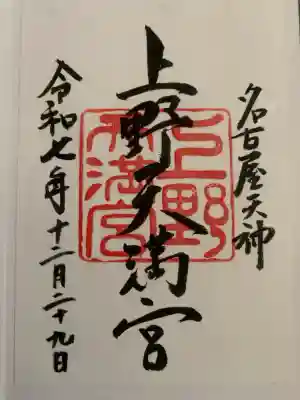 名古屋天神
上野天満宮
上野天満宮
令和七年十二月二十九日